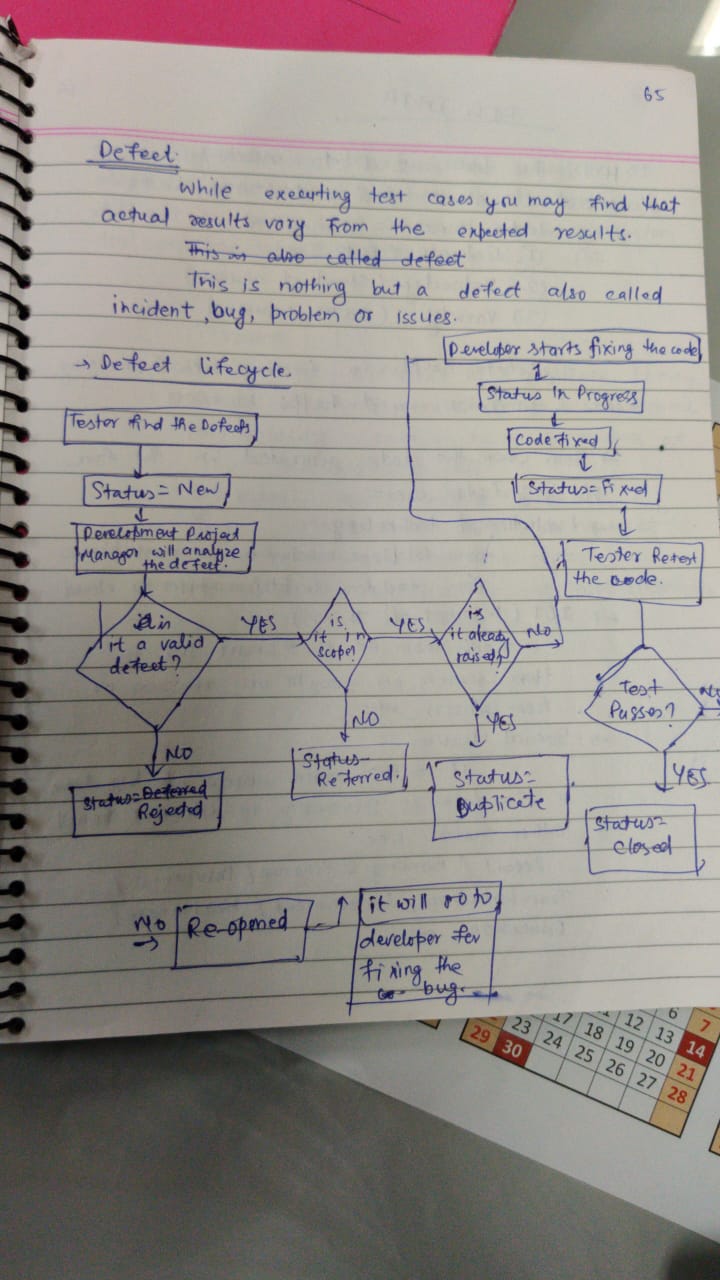 65
Defect:
While executing test cases you may find that
actual results vary from the expected results.
This is also called defect
This is nothing but a defect also called
incident, bug, problem or issues.
→ Defect lifecycle.
Tester find the Defects
Status = New
Development Project
Manager will analyze
the defect.
is
it a valid
defect?
YES
is
it in
scope?
YES
is
it already
raised?
No
NO
Status = Deferred
Rejected
NO
Status =
Referred.
YES
Status =
Duplicate
Developer starts fixing the code
Status In Progress
Code Fixed
Status = Fixed
Tester Retest
the code.
Test
Passes?
No
YES
Status =
Closed
NO
→
Re-opened
it will go to
developer for
fixing the
bug.
6 7
12 13 14
17 18 19 20 21
23 24 25 26 27 28
29 30